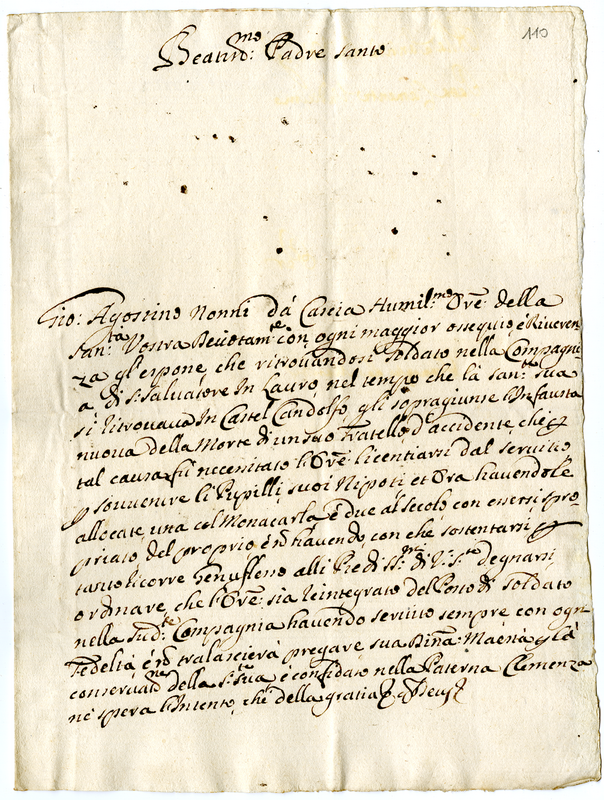 110
Beatis.mo: Padre Santo
Gio: Agostino Nonni da Cascia Humil.mo Ore: della
San:ta Vostra Devotam:te con ogni maggior ossequio, è Riveren
za gl'espone, che ritrovandosi soldato nella Compagni
a, di S: Salvatore In Lauro, nel tempo che la San:tà sua
si ritrovava In Castel Candolfo, gli sopragiunse Infausta
nuova della Morte di un suo Fratello, d'accidente, che p
tal causa fù necessitato l'Ore: licentiarsi dal servitio
p souvenire li Pupilli, suoi Nipoti, et Ora havendole
allocate una col Monacarla, è due al secolo, con essersi pro
priato del proprio, è nō havendo con che sostentarsi, p
tanto ricorre Genuflesso alli Piedi SS.mi di V: S:tà degnarsi
ordinare, che l'Ore: sia reintegrato del Posto di soldato
nella sud:ta Compagnia havendo servito sempre con ogni
Fedeltà, è nō tralascierà pregare sua Divina: Maestà p la
conservat:ne della S:tà sua, è confidato nella Paterna Clemenza
nè spera l'Intento, che della gratia &c Quam Deus &c